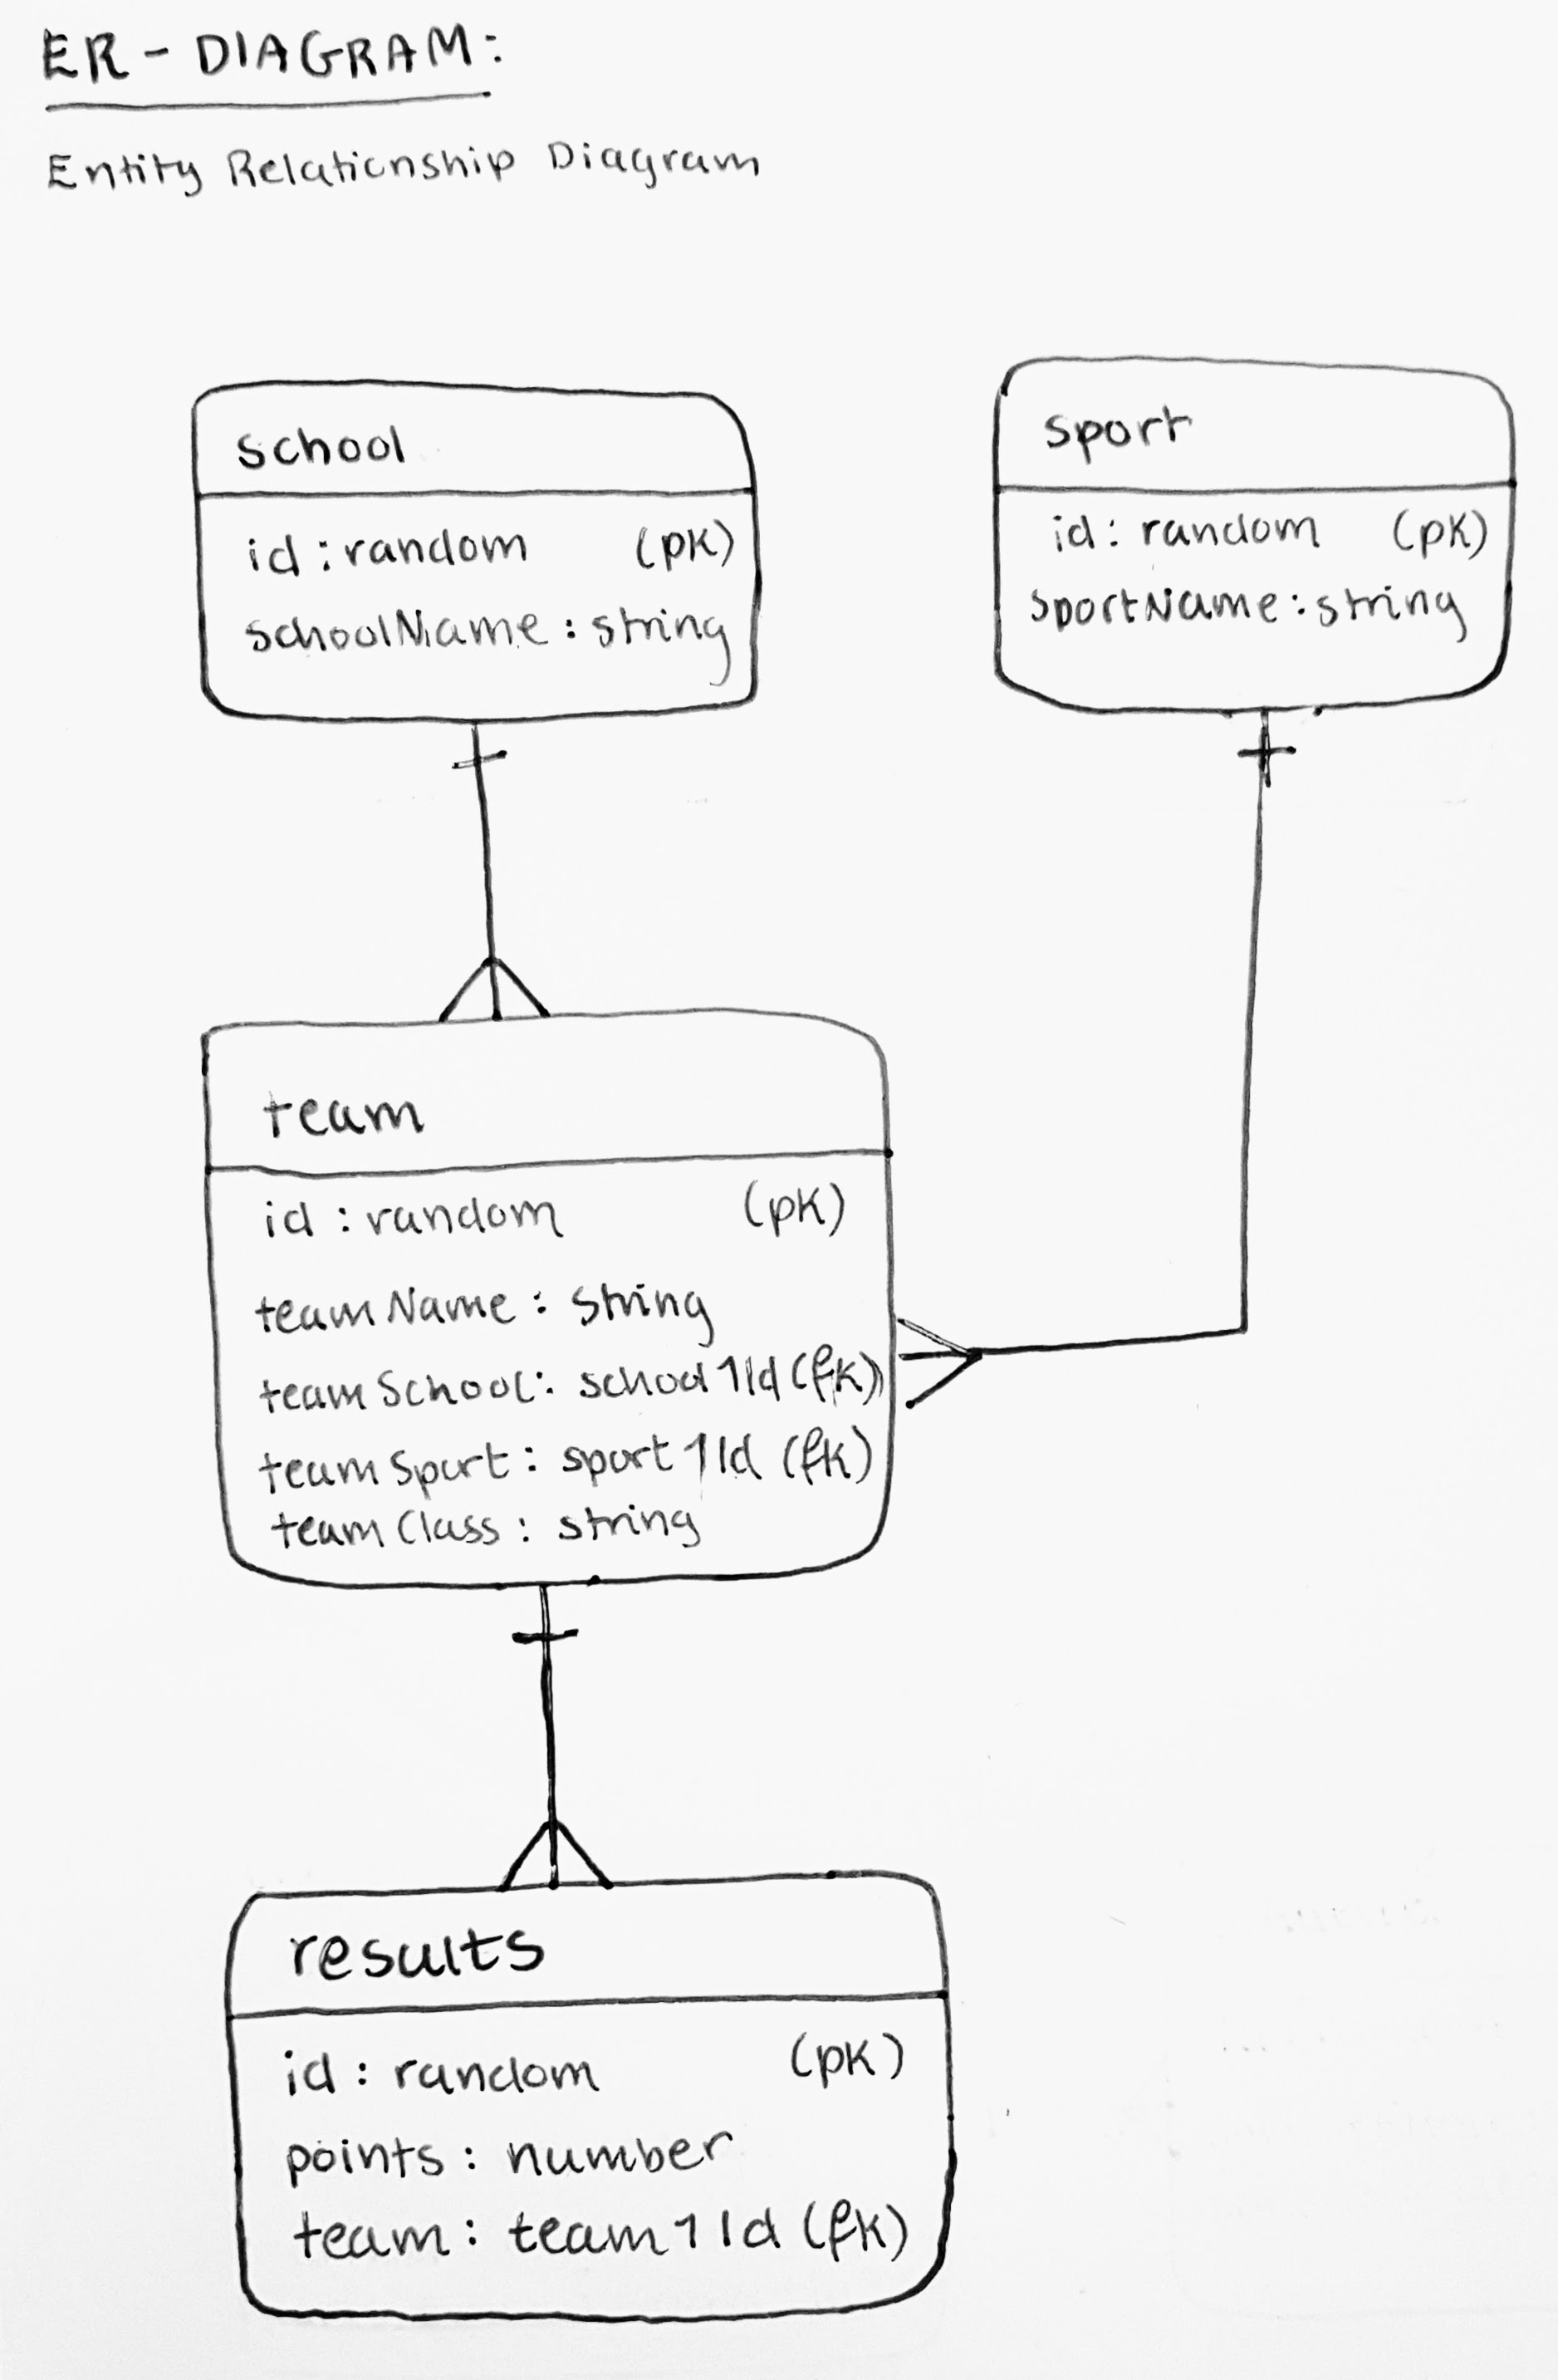 ER - DIAGRAM:
Entity Relationship Diagram
school
id : random (pk)
schoolName : string
sport
id : random (pk)
sportName : string
team
id : random (pk)
teamName : string
teamSchool : school1Id (fk)
teamSport : sport1Id (fk)
teamClass : string
results
id : random (pk)
points : number
team : team1Id (fk)